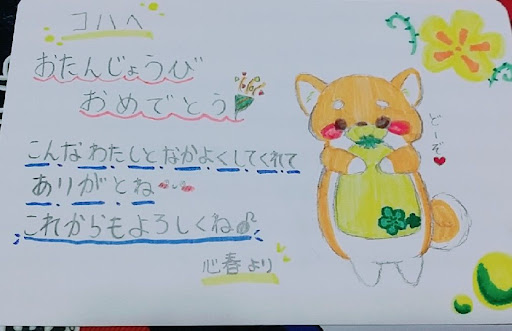 コハへ
おたんじょうび
おめでとう
こんなわたしとなかよくしてくれて
ありがとね
これからもよろしくね
心春より
どーぞ